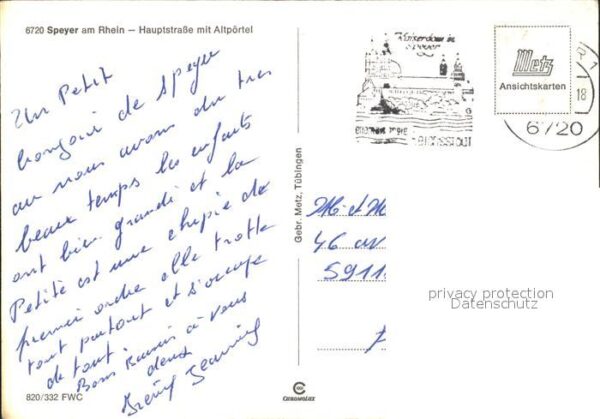 6720 Speyer am Rhein — Hauptstraße mit Altpörtel
Un Petit
bonjour de Speyer
ou nous avons du tres
beaux temps les enfants
ont bien grandi et la
Petite est une chipie de
premier ordre elle trotte
tout partout et s'occupe
de tout.
Bons Baisers à vous
deux
820/332 FWC
Gebr. Metz, Tübingen
CHROMOLUX
Kaiserdom in
Speyer
Metz
Ansichtskarten
18
6720
M et M
46
5911
privacy protection
Datenschutz